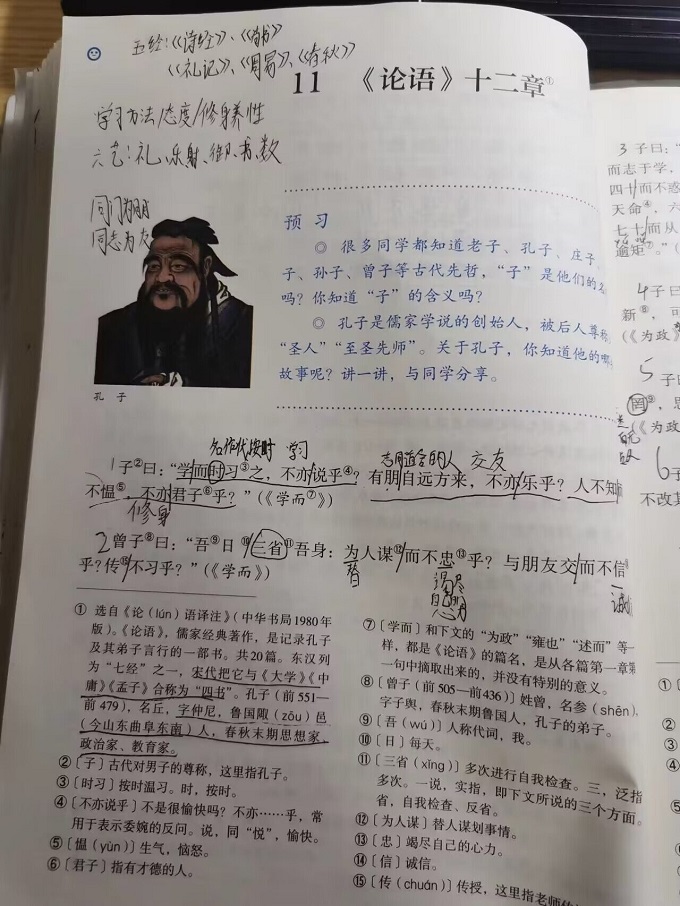 五经:《诗经》、《尚书》
《礼记》、《周易》、《春秋》
11 《论语》十二章①
学习方法/态度/修身养性
六艺:礼、乐、射、御、书、数
同门为朋
同志为友
预 习
◎ 很多同学都知道老子、孔子、庄子
子、孙子、曾子等古代先哲,“子”是他们的名
吗?你知道“子”的含义吗?
◎ 孔子是儒家学说的创始人,被后人尊称
“圣人”“至圣先师”。关于孔子,你知道他的哪
故事呢?讲一讲,与同学分享。
孔 子
名作状,按时 学习 志同道合的人 交友
1子②曰:“学而时习③之,不亦说乎④?有朋自远方来,不亦乐乎?人不知而
不愠⑤,不亦君子⑥乎?”(《学而⑦》)
修身
2曾子⑧曰:“吾⑨日⑩三省⑪吾身:为人谋⑫而不忠⑬乎?与朋友交而不信⑭
替 竭尽自己的心力 诚信
乎?传⑮不习乎?”(《学而》)
① 选自《论(lún)语译注》(中华书局1980年
版)。《论语》,儒家经典著作,是记录孔子
及其弟子言行的一部书。共20篇。东汉列
为“七经”之一,宋代把它与《大学》《中
庸》《孟子》合称为“四书”。孔子(前551—
前479),名丘,字仲尼,鲁国陬(zōu)邑
(今山东曲阜东南)人,春秋末期思想家、
政治家、教育家。
②〔子〕古代对男子的尊称,这里指孔子。
③〔时习〕按时温习。时,按时。
④〔不亦说乎〕不是很愉快吗?不亦……乎,常
用于表示委婉的反问。说,同“悦”,愉快。
⑤〔愠(yùn)〕生气,恼怒。
⑥〔君子〕指有才德的人。
⑦〔学而〕和下文的“为政”“雍也”“述而”等一
样,都是《论语》的篇名,是从各篇第一章第
一句中摘取出来的,并没有特别的意义。
⑧〔曾子(前505—前436)〕姓曾,名参(shēn),
字子舆,春秋末期鲁国人,孔子的弟子。
⑨〔吾(wú)〕人称代词,我。
⑩〔日〕每天。
⑪〔三省(xǐng)〕多次进行自我检查。三,泛指
多次。一说,实指,即下文所说的三个方面。
省,自我检查、反省。
⑫〔为人谋〕替人谋划事情。
⑬〔忠〕竭尽自己的心力。
⑭〔信〕诚信。
⑮〔传(chuán)〕传授,这里指老师传
3 子曰:“
而志于学,
四十而不惑
天命④,六
七十而从
逾矩⑦。”(
4子曰
新⑧,可
(《为政》
5 子曰
罔⑨,思
(《为政
6子
不改其